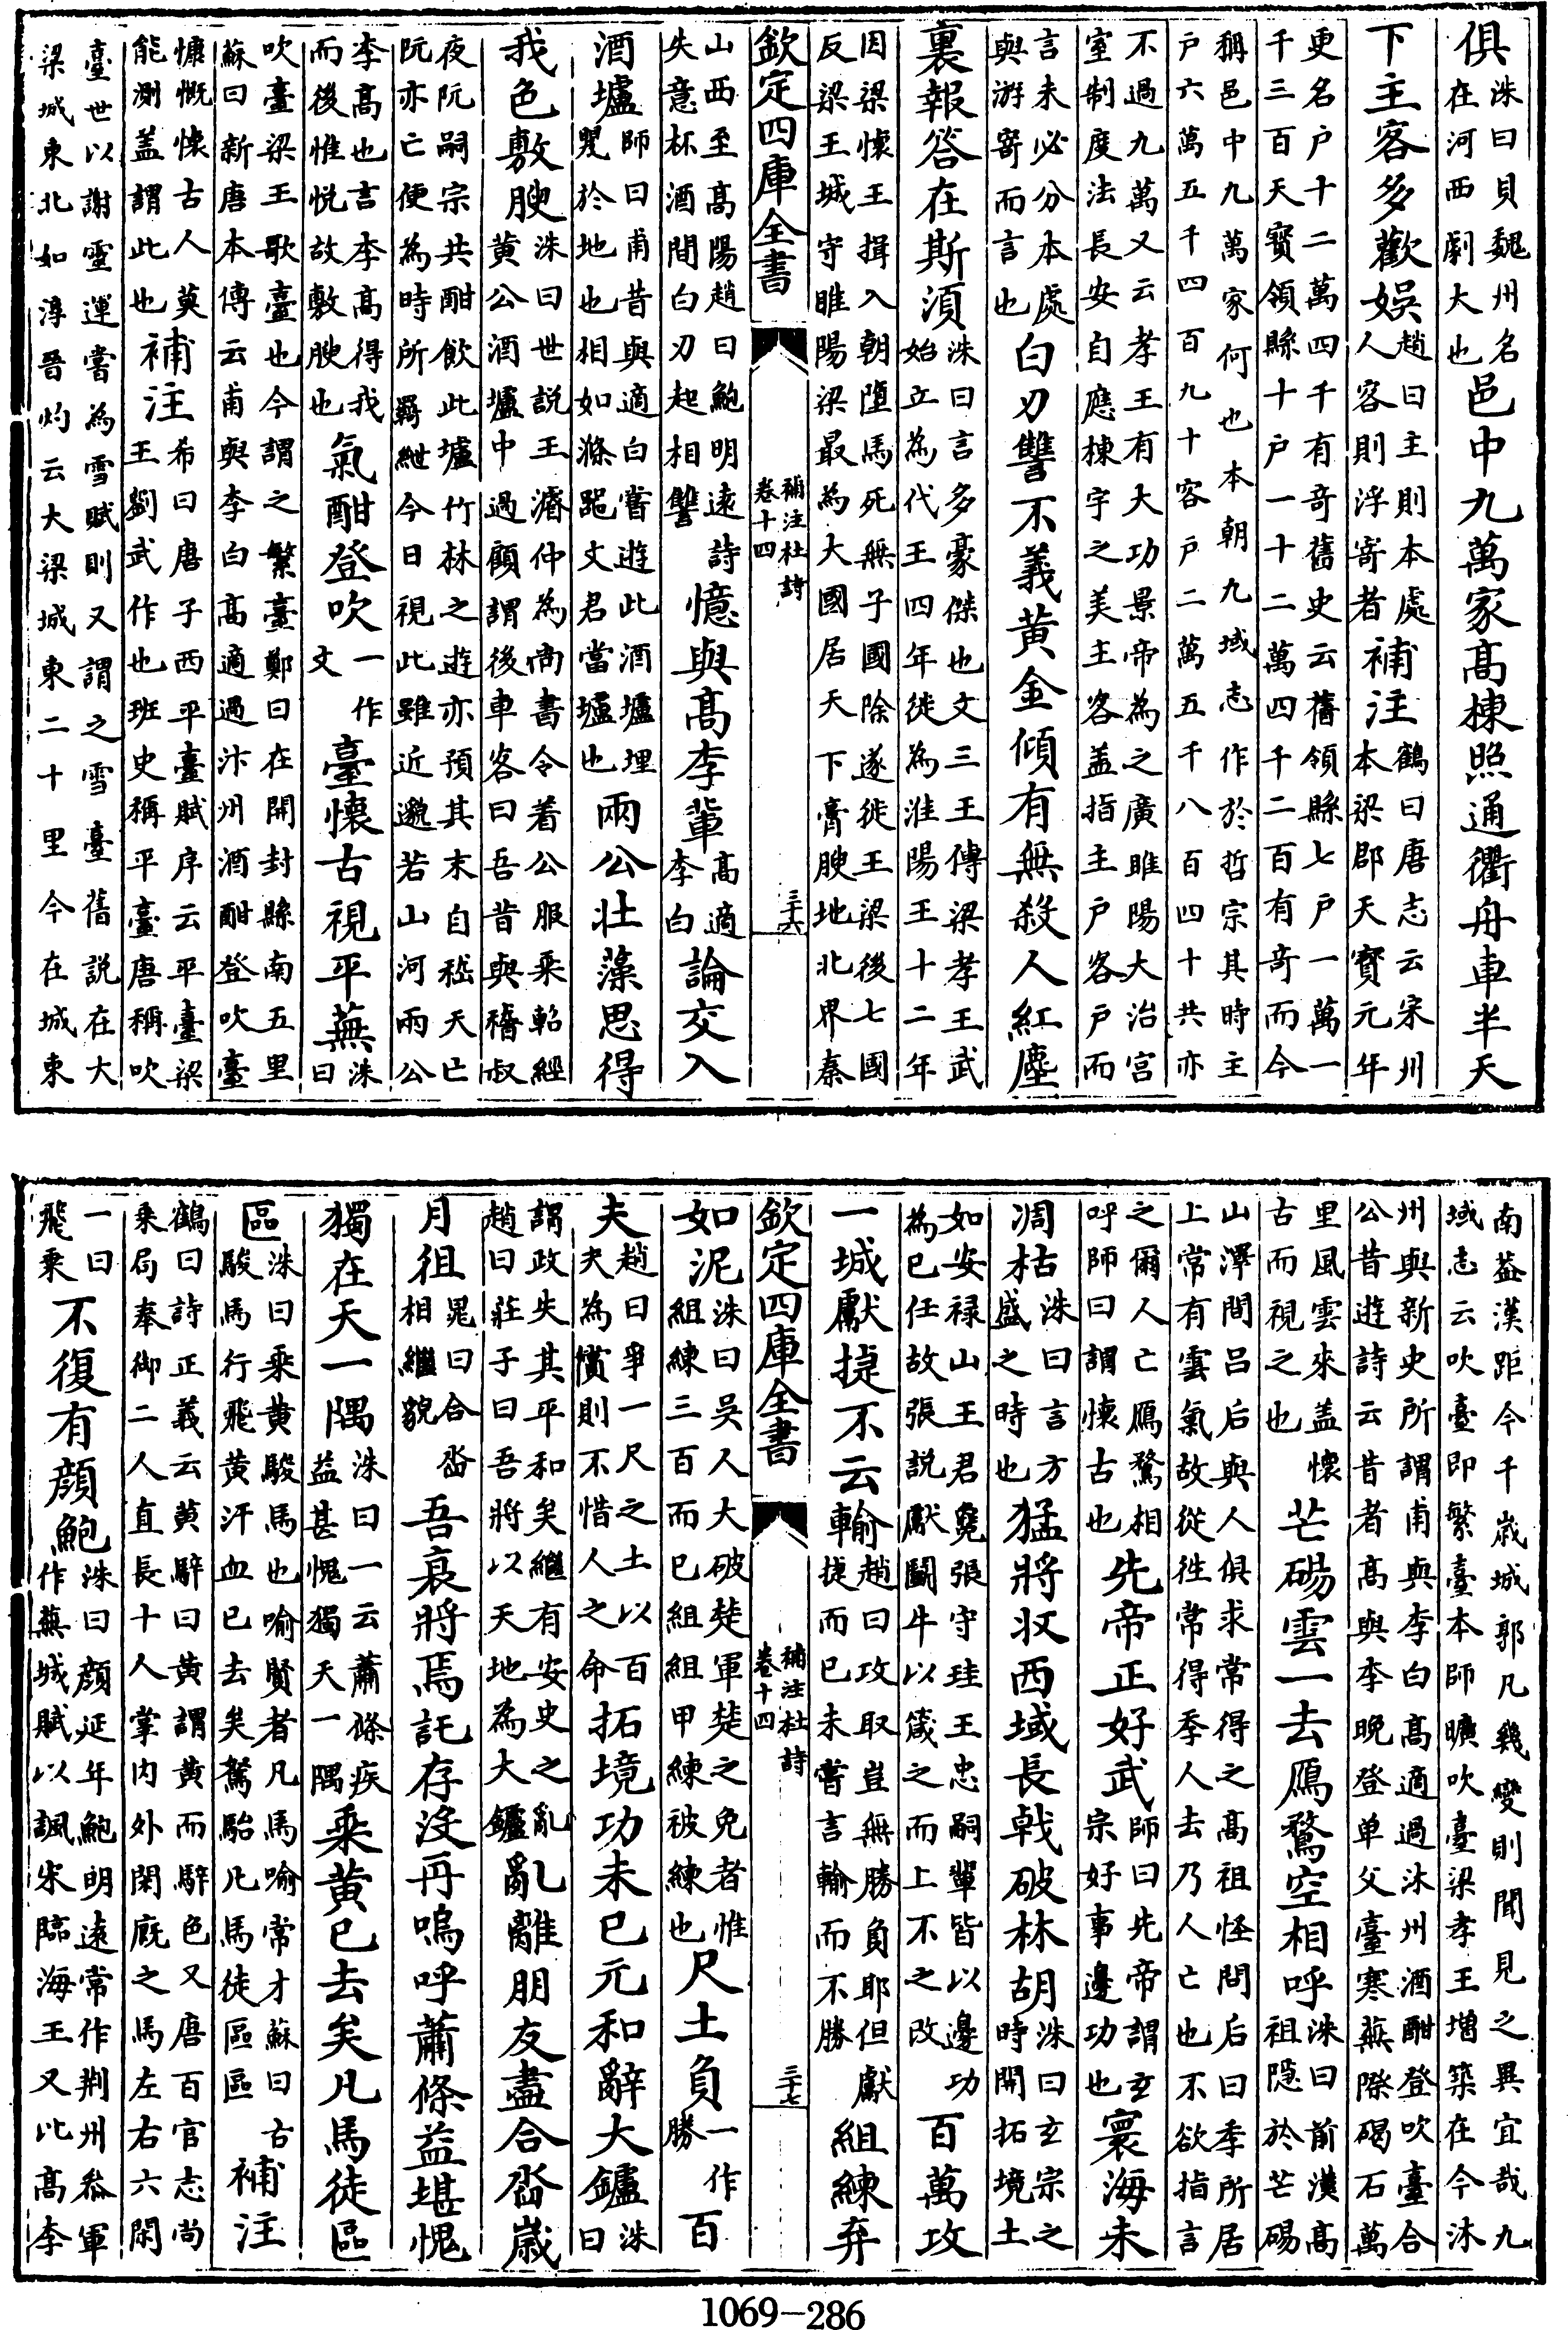 俱洙曰貝魏州名在河西劇大也邑中九萬家高棟照通衢舟車半天
下主客多歡娛趙曰主則本處人客則浮寄者補注鶴曰唐志云宋州本梁郡天寳元年
更名户十二萬四千有奇舊史云舊領縣七户一萬一千三百天寳領縣十户一十二萬四千二百有奇而今
稱邑中九萬家何也本朝九域志作於哲宗其時主户六萬五千四百九十客户二萬五千八百四十共亦
不過九萬又云孝王有大功景帝為之廣睢陽大治宫室制度法長安自應棟宇之美主客盖指主户客户而
言未必分本處與游寄而言也白刃讐不義黄金傾有無殺人紅塵
裏報答在斯須洙曰言多豪傑也文三王傳梁孝王武始立為代王四年徙為淮陽王十二年
因梁懷王揖入朝墮馬死無子國除遂徙王梁後七國反梁王城守睢陽梁最為大國居天下膏腴地北界秦
欽定四庫全書 補注杜詩 卷十四 三十六
山西至高陽趙曰鮑明遠詩失意杯酒間白刃起相讐憶與高李輩高適李白論交入
酒壚師曰甫昔與適白嘗遊此酒壚埋甖於地也相如滌器文君當壚也兩公壯藻思得
我色敷腴洙曰世説王濬仲為尚書令着公服乘軺經黄公酒壚中過顧謂後車客曰吾昔與嵇叔
夜阮嗣宗共酣飲此壚竹林之遊亦預其末自嵇夭亡阮亦亡便為時所羇紲今日視此雖近邈若山河兩公
李高也言李高得我而後惟悦故敷腴也氣酣登吹一作文臺懷古視平蕪洙曰
吹臺梁王歌臺也今謂之繁臺鄭曰在開封縣南五里蘇曰新唐本傳云甫與李白高適過汴州酒酣登吹臺
慷慨懷古人莫能測盖謂此也補注希曰唐子西平臺賦序云平臺梁王劉武作也班史稱平臺唐稱吹
臺世以謝靈運嘗為雪賦則又謂之雪臺舊説在大梁城東北如淳晉灼云大梁城東二十里今在城東
南益漢距今千歲城郭凡幾變則聞見之異宜哉九域志云吹臺即繁臺本師曠吹臺梁孝王增築在今汴
州與新史所謂甫與李白高適過汴州酒酣登吹臺合公昔遊詩云昔者高與李晚登单父臺寒蕪際碣石萬
里風雲來盖懷古而視之也芒碭雲一去鴈鶩空相呼洙曰前漢高祖隠於芒碭
山澤間吕后與人俱求常得之高祖怪問后曰季所居上常有雲氣故從徃常得季人去乃人亡也不欲指言
之爾人亡鴈鶩相呼師曰謂懷古也先帝正好武師曰先帝謂玄宗好事邊功也寰海未
凋枯洙曰言方盛之時也猛將収西域長戟破林胡洙曰玄宗之時開拓境土
如安禄山王君㚟張守珪王忠嗣輩皆以邊功為已任故張説獻鬭牛以箴之而上不之改
百萬攻
一城獻捷不云輸趙曰攻取豈無勝負耶但獻捷而已未嘗言輸而不勝組練弃
欽定四庫全書 補注杜詩 卷十四 三十七
如泥洙曰吳人大破楚軍楚之免者惟組練三百而已組組甲練被練也尺土負一作勝百
夫趙曰爭一尺之土以百夫為償則不惜人之命拓境功未已元和辭大鑪洙曰
謂政失其平和矣繼有安史之亂趙曰莊子曰吾將以天地為大鑪亂離朋友盡合沓歲
月徂晁曰合沓相繼貌吾衰將焉託存没再嗚呼蕭條益堪愧
獨在天一隅洙曰一云蕭條疾益甚愧獨天一隅乘黄已去矣凡馬徒區
區洙曰乘黄駿馬也喻賢者凡馬喻常才蘇曰古駿馬行飛黄汗血已去矣駑駘凡馬徒區區補注
鶴曰詩正義云黄騂曰黄謂黄而騂色又唐百官志尚乘局奉御二人直長十人掌内外閑廐之馬左右六閑
一曰飛乘不復有顔鮑洙曰顔延年鮑明遠常作荆州叅軍作蕪城賦以諷宋臨海王又比高李
1069-286